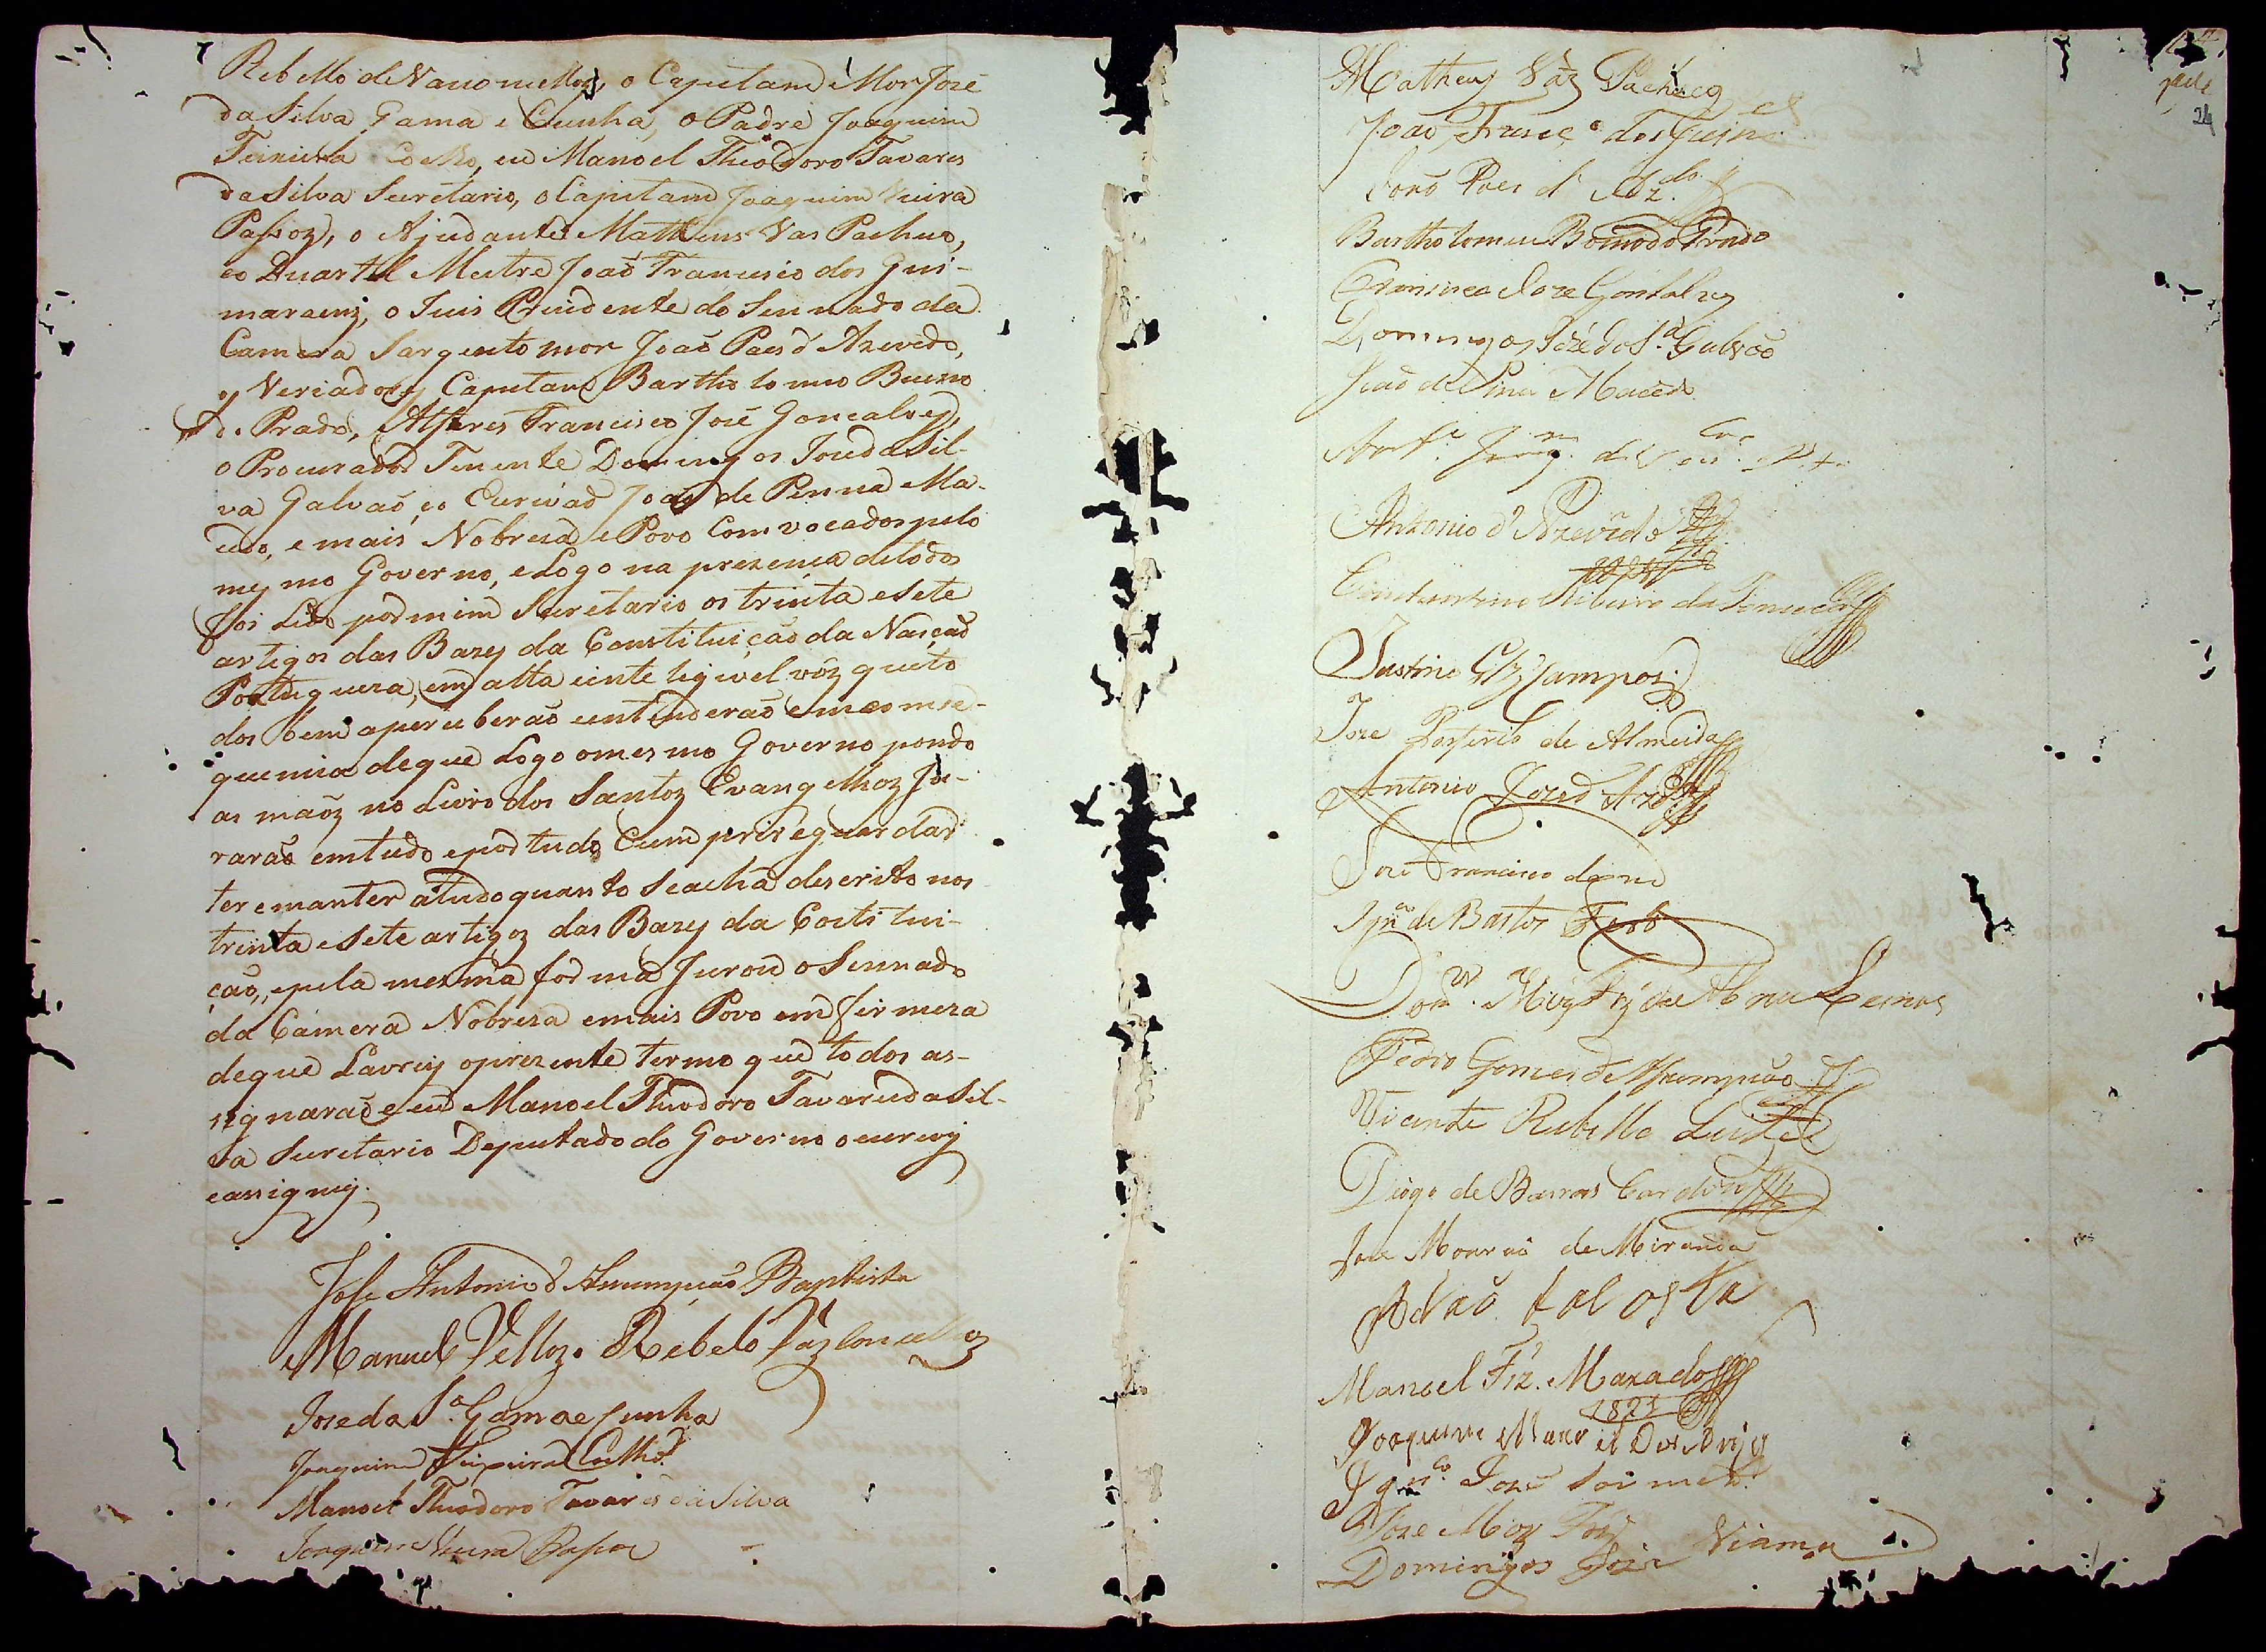 Rebello de Vasconsellos, o Capitam Mor José
da Silva Gama e Cunha, o Padre Joaquim
Teixeira Coelho, eu Manoel Theodoro Tavares
da Silva Secretario, o Capitam Joaquim Vieira
Passoz, o Ajudante Matheus Vas Pacheco,
eo Quartel Mestre João Francisco dos Gui-
maraens, o Juis Prezidente do Sennado da
Camera Sargento mor João Paes d' Azevedo,
os Veriadores Capitam Bartholomeo Bueno
do Prado, Alferes Francisco José Goncalves,
o Procurador Tenente Domingos José da Sil-
va Galvaõ, eo Escrivaõ Joaõ de Penna Ma-
cedo, e mais Nobreza e Povo Comvocados pelo
mesmo Governo, eLogo na prezença detodos
foi Lido por mim Secretario os trinta esete
artigos das Bazes da Constituiçaõ da Nasçaõ
Portugueza, em alta einteligivel vóz queto
dos bem aperceberaõ eentenderaõ emconse-
quencia deque Logo omesmo Governo pondo
as maõz no Livro dos Santoz Evangelhoz Ju-
raraõ emtudo eportudo Cumprir eguardar
ter emanter atudoquanto Seachá descrito nos
trinta eSete artigoz das Bazes da Costitui-
caõ, epela mesma forma Jurou oSennado
da Camera Nobreza emais Povo em firmeza
deque Lavrey oprezente termo que todos as-
signaraõ eeu Manoel Theodoro Tavares da Sil-
va Secretario Deputado do Governo oescrevy
eassigney.
Jose Antonio d' Assumpçaõ Baptista
Manuel Vellozo Rebelo Vazconcelloz
Joze da Sa. Gama e Cunha
Joaquim Teixeira Coelho
Manoel Theodoro Tavares da Silva
Joaquim Vieira Passos
24
Matheus Váz Pacheco
João Francco dos Guims
João Paes d' Azdo.
Bartholomeu Boeno do Prado
Francisco Jose Gonsalvez
Domingos Jozé da Sa. Galvão
João de Pina Macedo
Antonio d' Azevedo
Constantino Ribeiro da Fonseca
Justino Glz Campos
Joze Porfirio de Almeida
Antonio Joze d' Ar
José Francisco
Ignco de Bastos
Domos. de Abreu Lemos
Pedro Gomes d'Assumpção
Vicente Rebello Leite
Diogo de Barros Cardozo
Jose Mourão de Miranda
Adão
Manoel Frz. Maxado
1821
Joaquim Manoel
Ignco. Joze
Joze
Domingos Joze Vianna